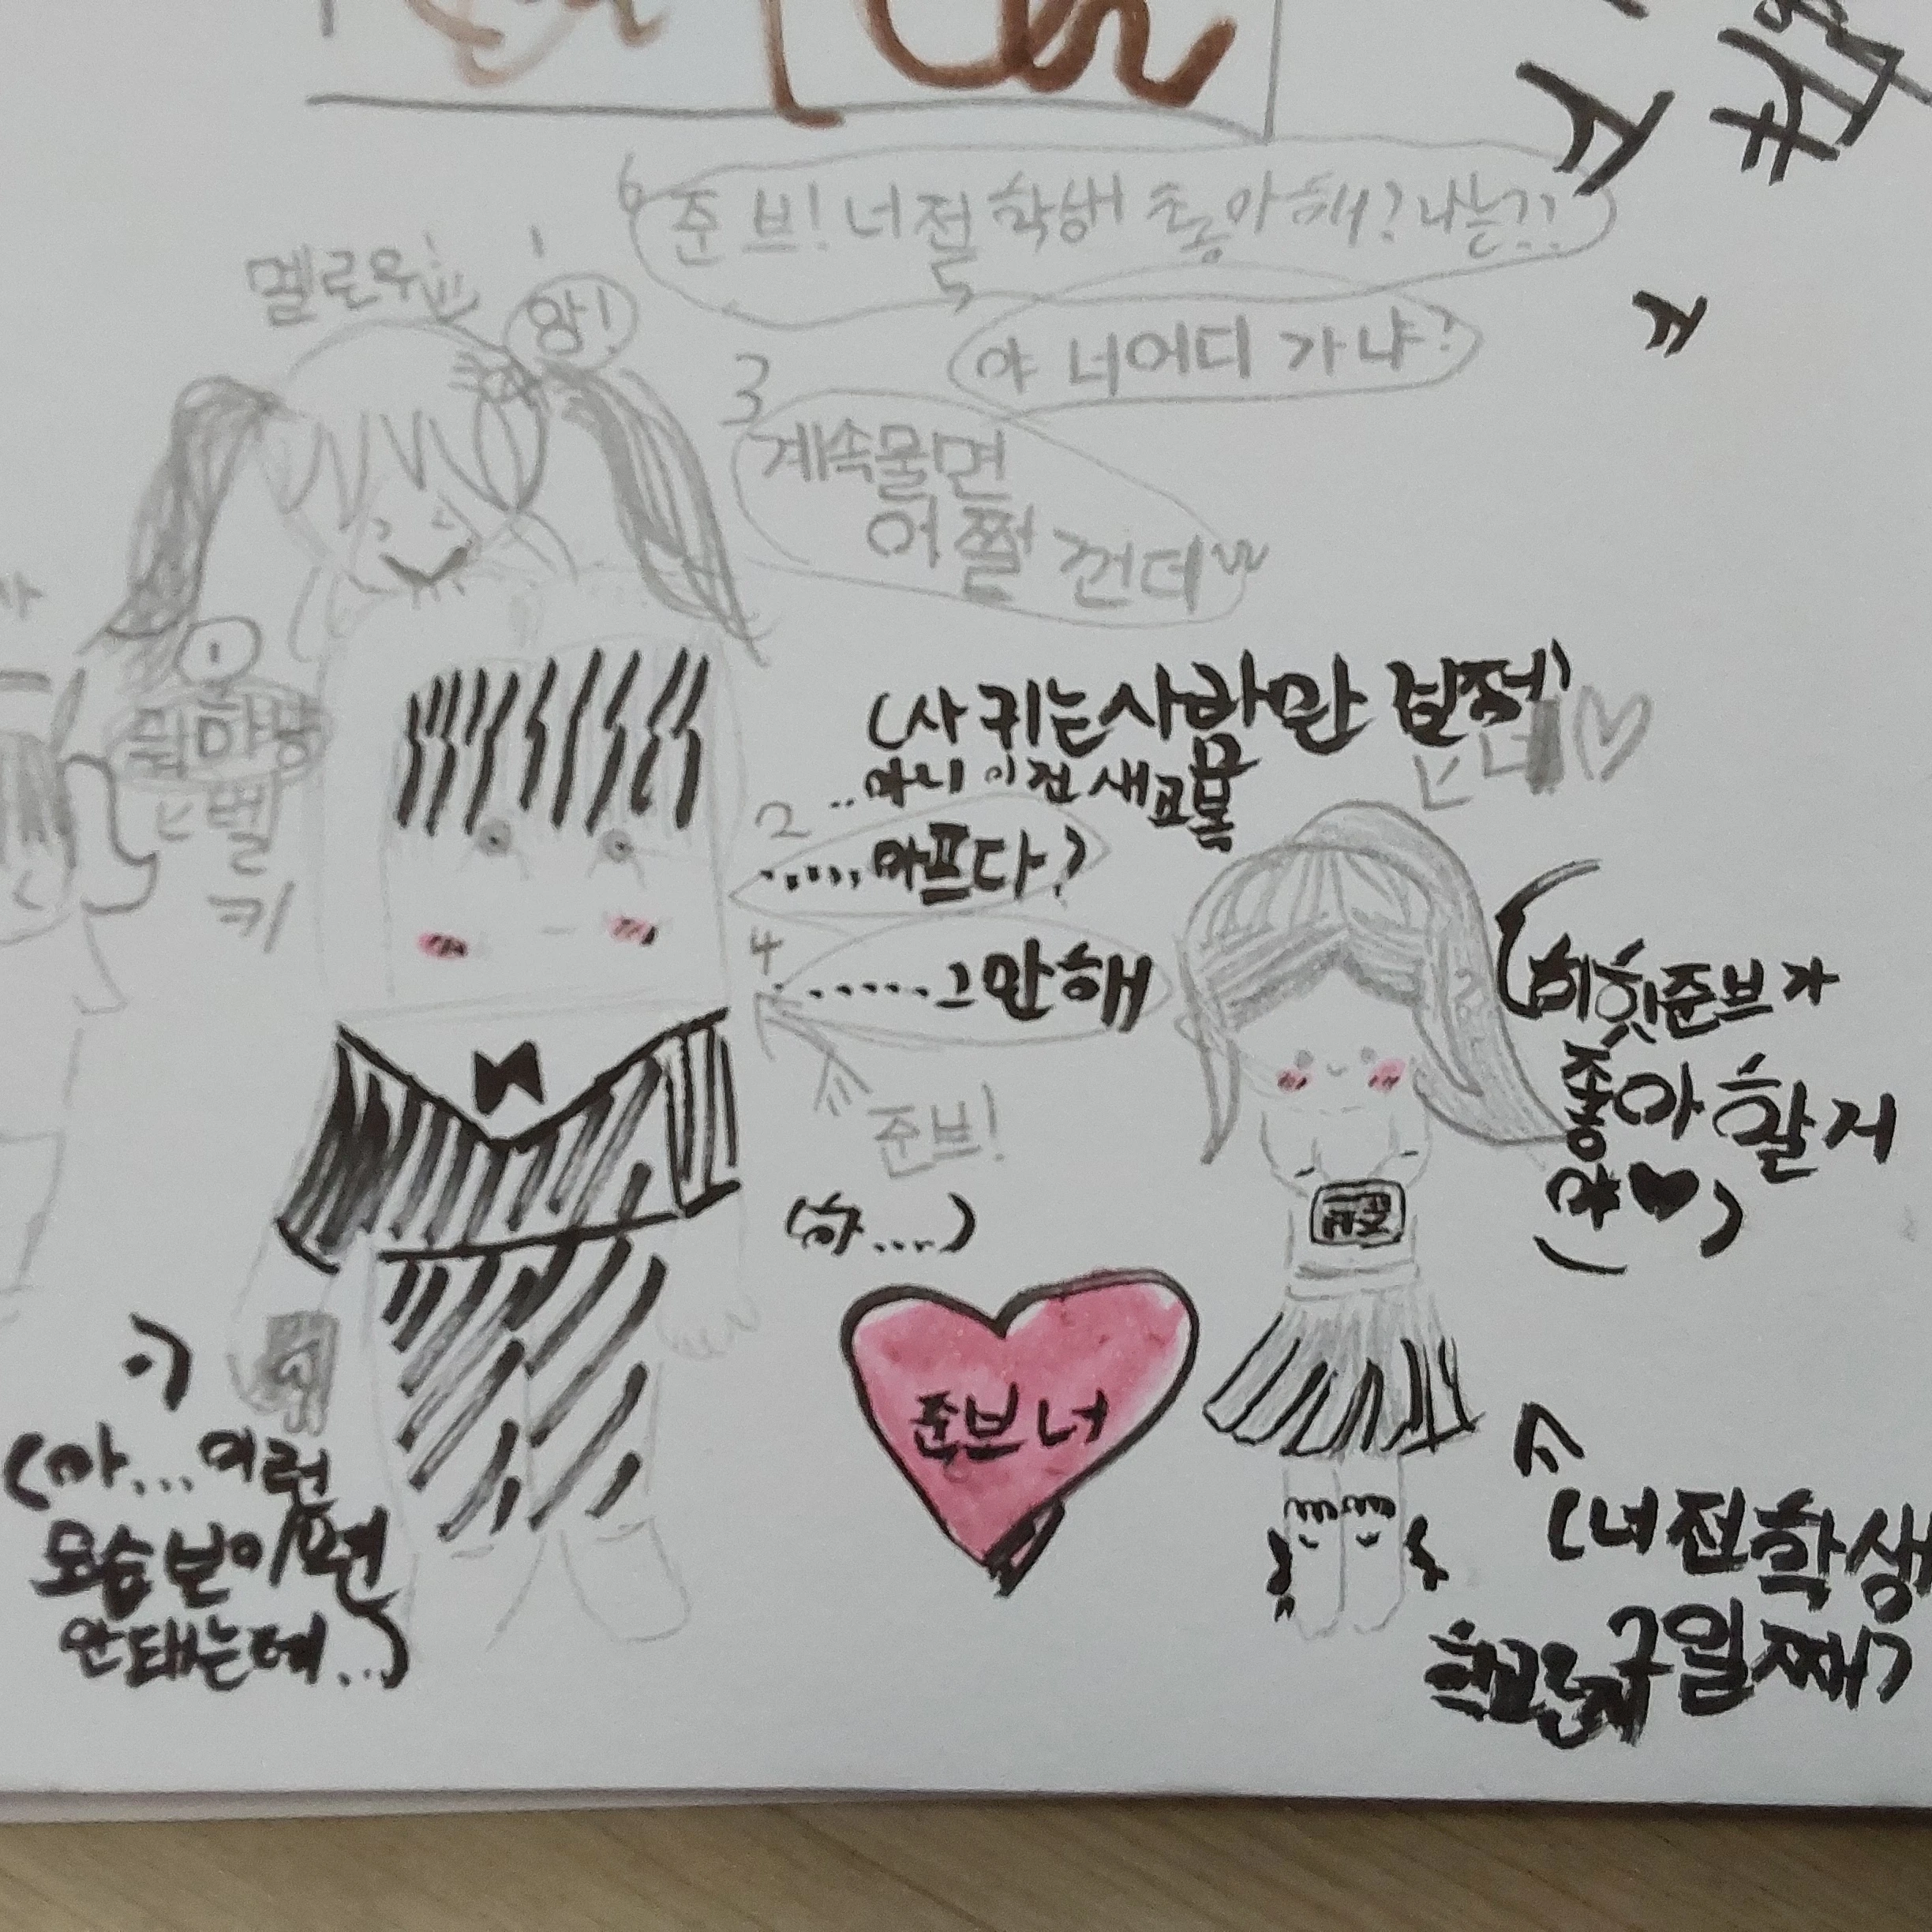 준브! 너 전학생 좋아해? 나는??
멜로우
앙!
5
야 너어디 가냐?
3
계속물면
어쩔 껀데
1
뭐야
벨
키
(사귀는사람만
아니 이건 새
2
.....아프다?
4
.......그만해
준브!
(하....)
헤헷준브가
좋아할거
야♥)
준브 너
(아...이런
모습보이면
안돼는데..)
(너전학생
7일째)